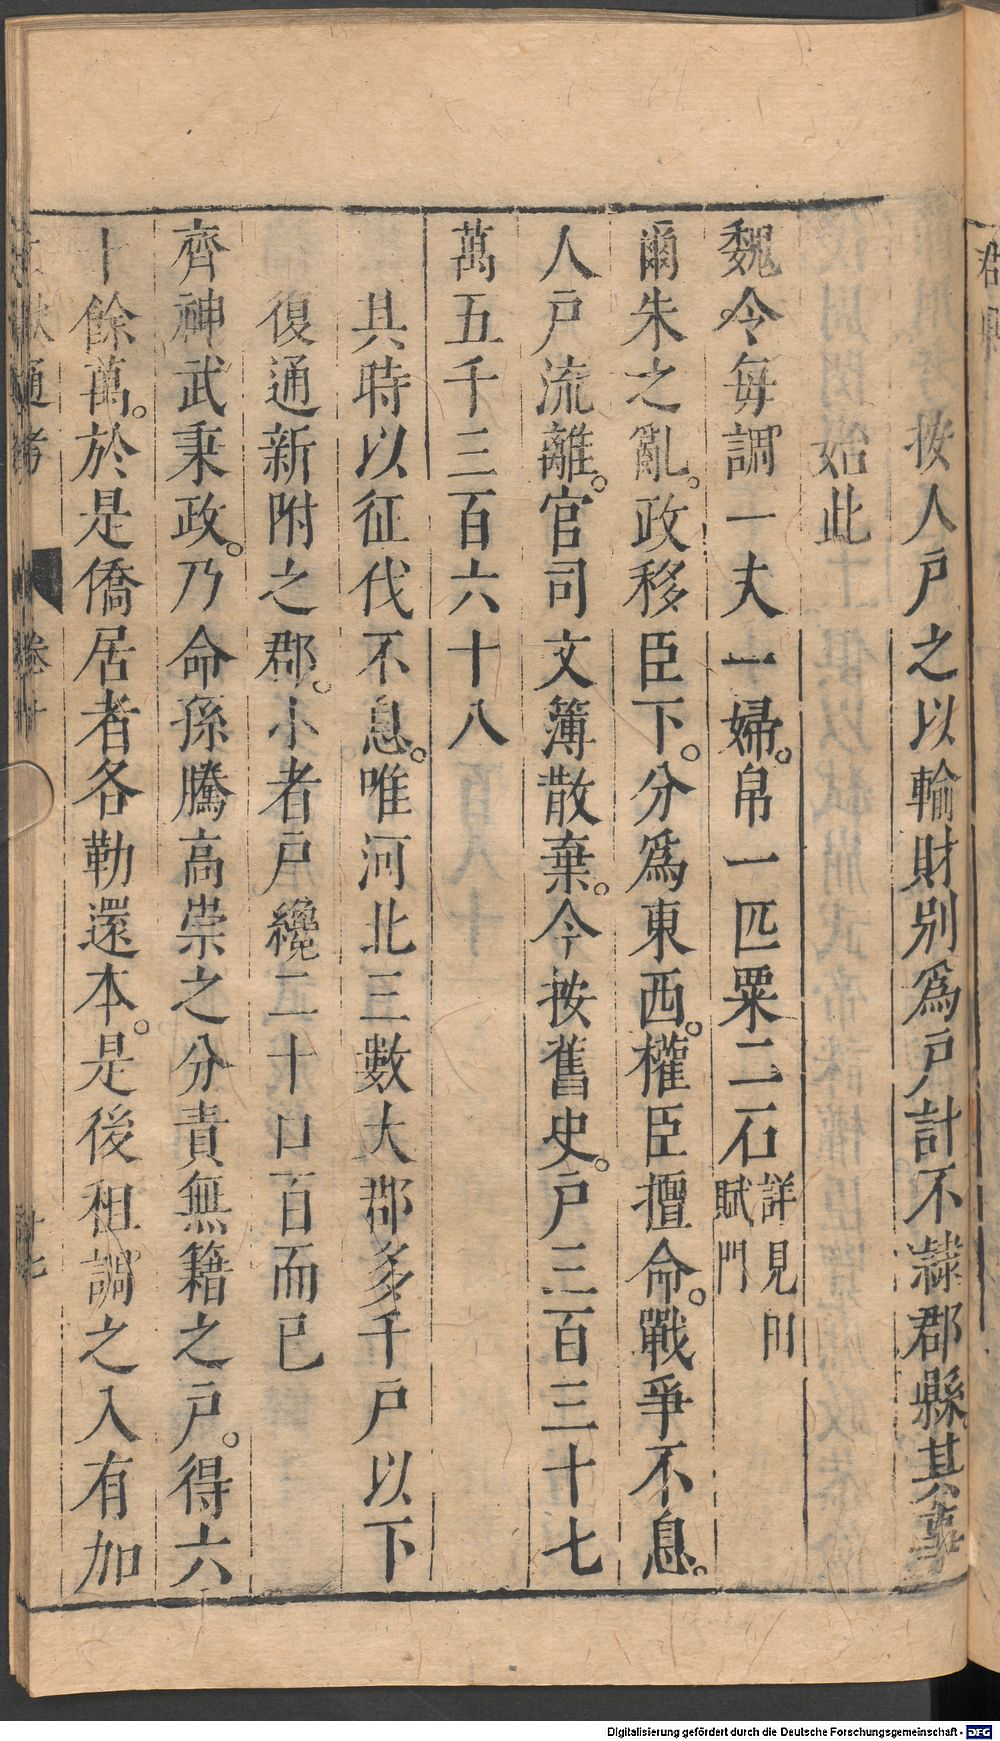 按人戸之以輸財別爲戸計不隸郡縣其事
始此
魏令每調一夫一婦。帛一匹粟二石詳見田賦門
爾朱之亂。政移臣下。分爲東西。權臣擅命。戰爭不息。
人戸流離。官司文簿散棄。今按舊史。戸三百三十七
萬五千三百六十八
其時以征伐不息。唯河北三數大郡多千戸以下
復通新附之郡。小者戸纔二十口百而已
齊神武秉政。乃命孫騰高崇之分責無籍之戸。得六
十餘萬。於是僑居者各勒還本。是後租調之入有加
通考
卷十
十七
Digitalisierung gefördert durch die Deutsche Forschungsgemeinschaft - DFG